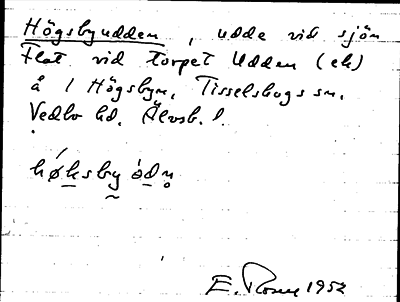 Högsbyudden, udde vid sjön
Flat vid torpet Udden (ek)
å 1 Högsbyn, Tisselskogs sn.
Vedbo hd. Älvsb. l.
hǿksby ódṇ
E. Rosen 1952